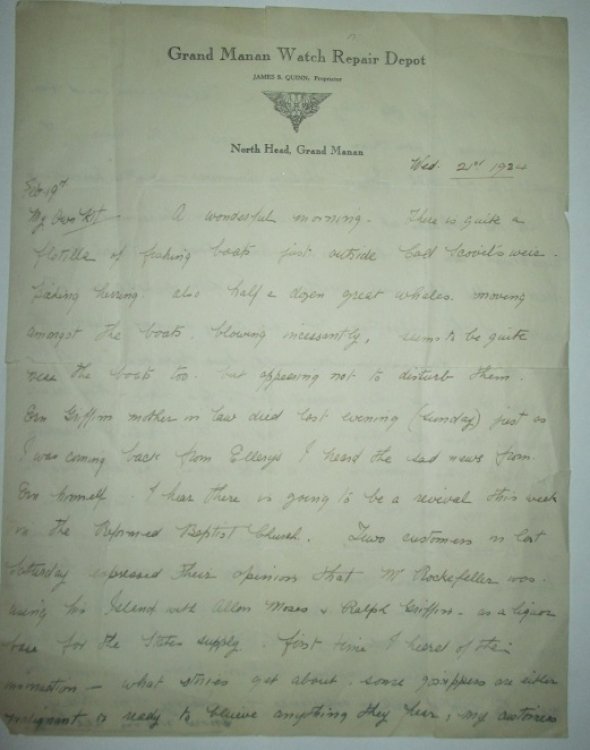 Grand Manan Watch Repair Depot
JAMES S. QUINN, Proprietor
North Head, Grand Manan
Wed. 21st 1924
Feb 19th
My Own Kit — A wonderful morning. There is quite a
flotilla of fishing boats just outside Scovil's weir.
taking herring also half a dozen great whales moving
amongst the boats, blowing incessantly, seems to be quite
near the boats too. but appearing not to disturb them.
Ern Griffin mother in law died last evening (Sunday) just as
I was coming back from Ellerys I heard the sad news from
Ern himself. I hear there is going to be a revival this week
in the Reformed Baptist Church. Two customers in last
Saturday expressed their opinion that Mr Rockefeller was
using his Island with Allan Moses & Ralph Griffin - as a liquor
base for the States supply. first time I heard of their
— what stories get about. some gossippers are either
malignant or ready to believe anything they hear, my customers